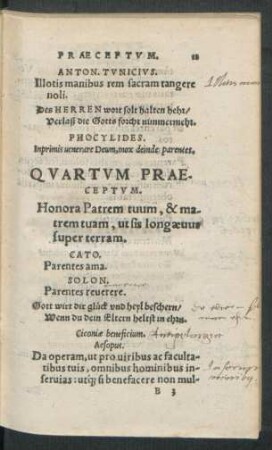 PRAECEPTVM.
ANTON. TVNICIVS.
Illotis manibus rem sacram tangere
noli.
Des HERREN wort solt halten hehr/
Verlaß die Gotts forcht nimmermehr.
PHOCYLIDES.
Inprimis venerare Deum, mox deinde parentes.
QVARTVM PRAE-
CEPTVM.
Honora Patrem tuum, & ma-
trem tuam, ut sis longæuus
super terram.
CATO.
Parentes ama.
SOLON.
Parentes reuerere.
Gott wirt dir glück und heyl beschern/
Wenn du dein Eltern heltst in ehrn.
Ciconiæ beneficium.
Aesopus.
Da operam, ut pro uiribus ac faculta-
tibus tuis, omnibus hominibus in-
seruias: utq; si benefacere non mul-
B 3